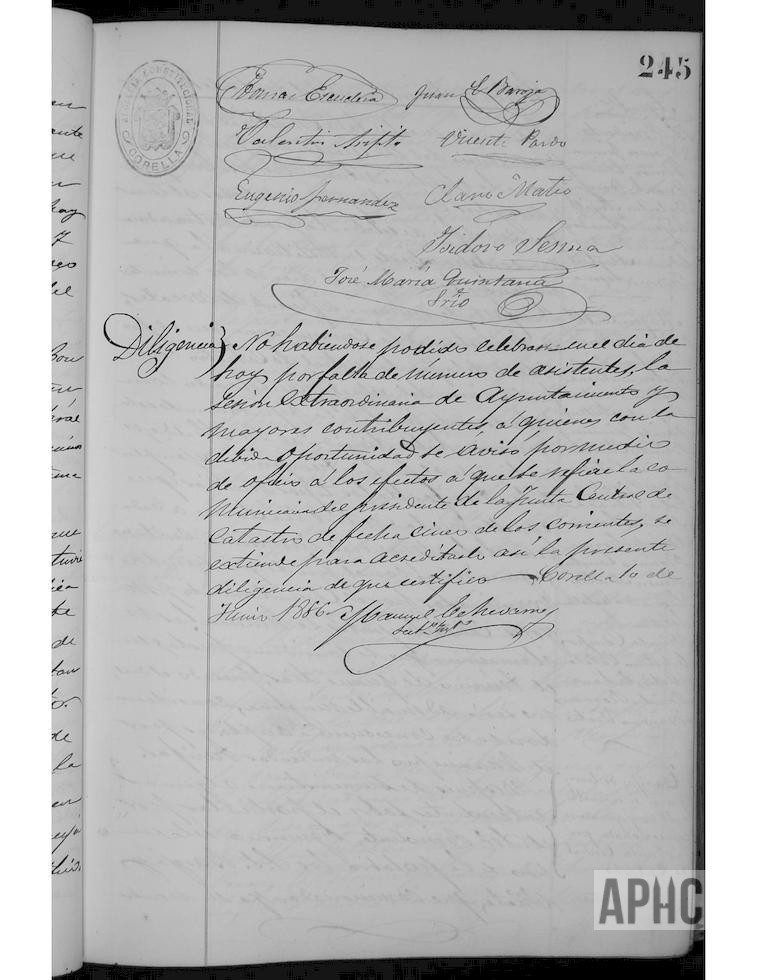 245
ALCALDIA CONSTITUCIONAL
CORELLA
Tomas Escudero Juan C. Baroja
Valentin Vicente Pardo
Eugenio Fernandez Claro Mateo
Isidoro Sesma
José María Quintana
Srio
Diligencia) No habiendose podido celebrar en el dia de
hoy por falta de número de asistentes, la
sesion extraordinaria de Ayuntamiento y
mayores contribuyentes á quienes con la
debida oportunidad se avisó por medio
de oficio á los efectos á que se refiere la co
municacion del presidente de la Junta Central de
Catastro de fecha cinco de los corrientes, se
extiende para acreditarlo asi la presente
diligencia de que certifico Corella 10 de
Junio 1886 Manuel Echeverria
APHC